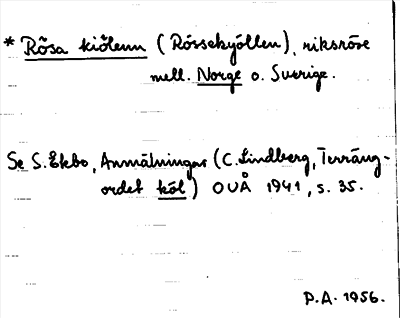 * Rösa kiölenn (Rössekyöllen), riksröse
mell. Norge o. Sverige.
Se S. Ekbo, Anmälningar (C. Lindberg, Terräng-
ordet köl) OUÅ 1941, s. 35.
P.A. 1956.